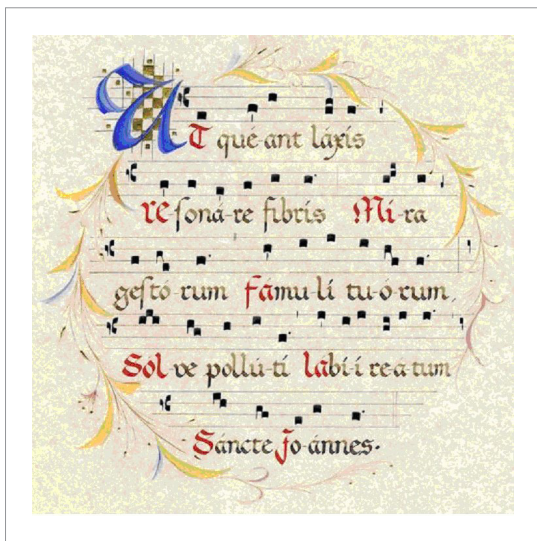 UT qué-ant láxis
reſoná-re fibris Mi-ra
geſtó-rum Fámu-li tu-o-rum,
Sol-ve pollú-ti labi-i re-a-tum
Sáncte Jo-ánnes.